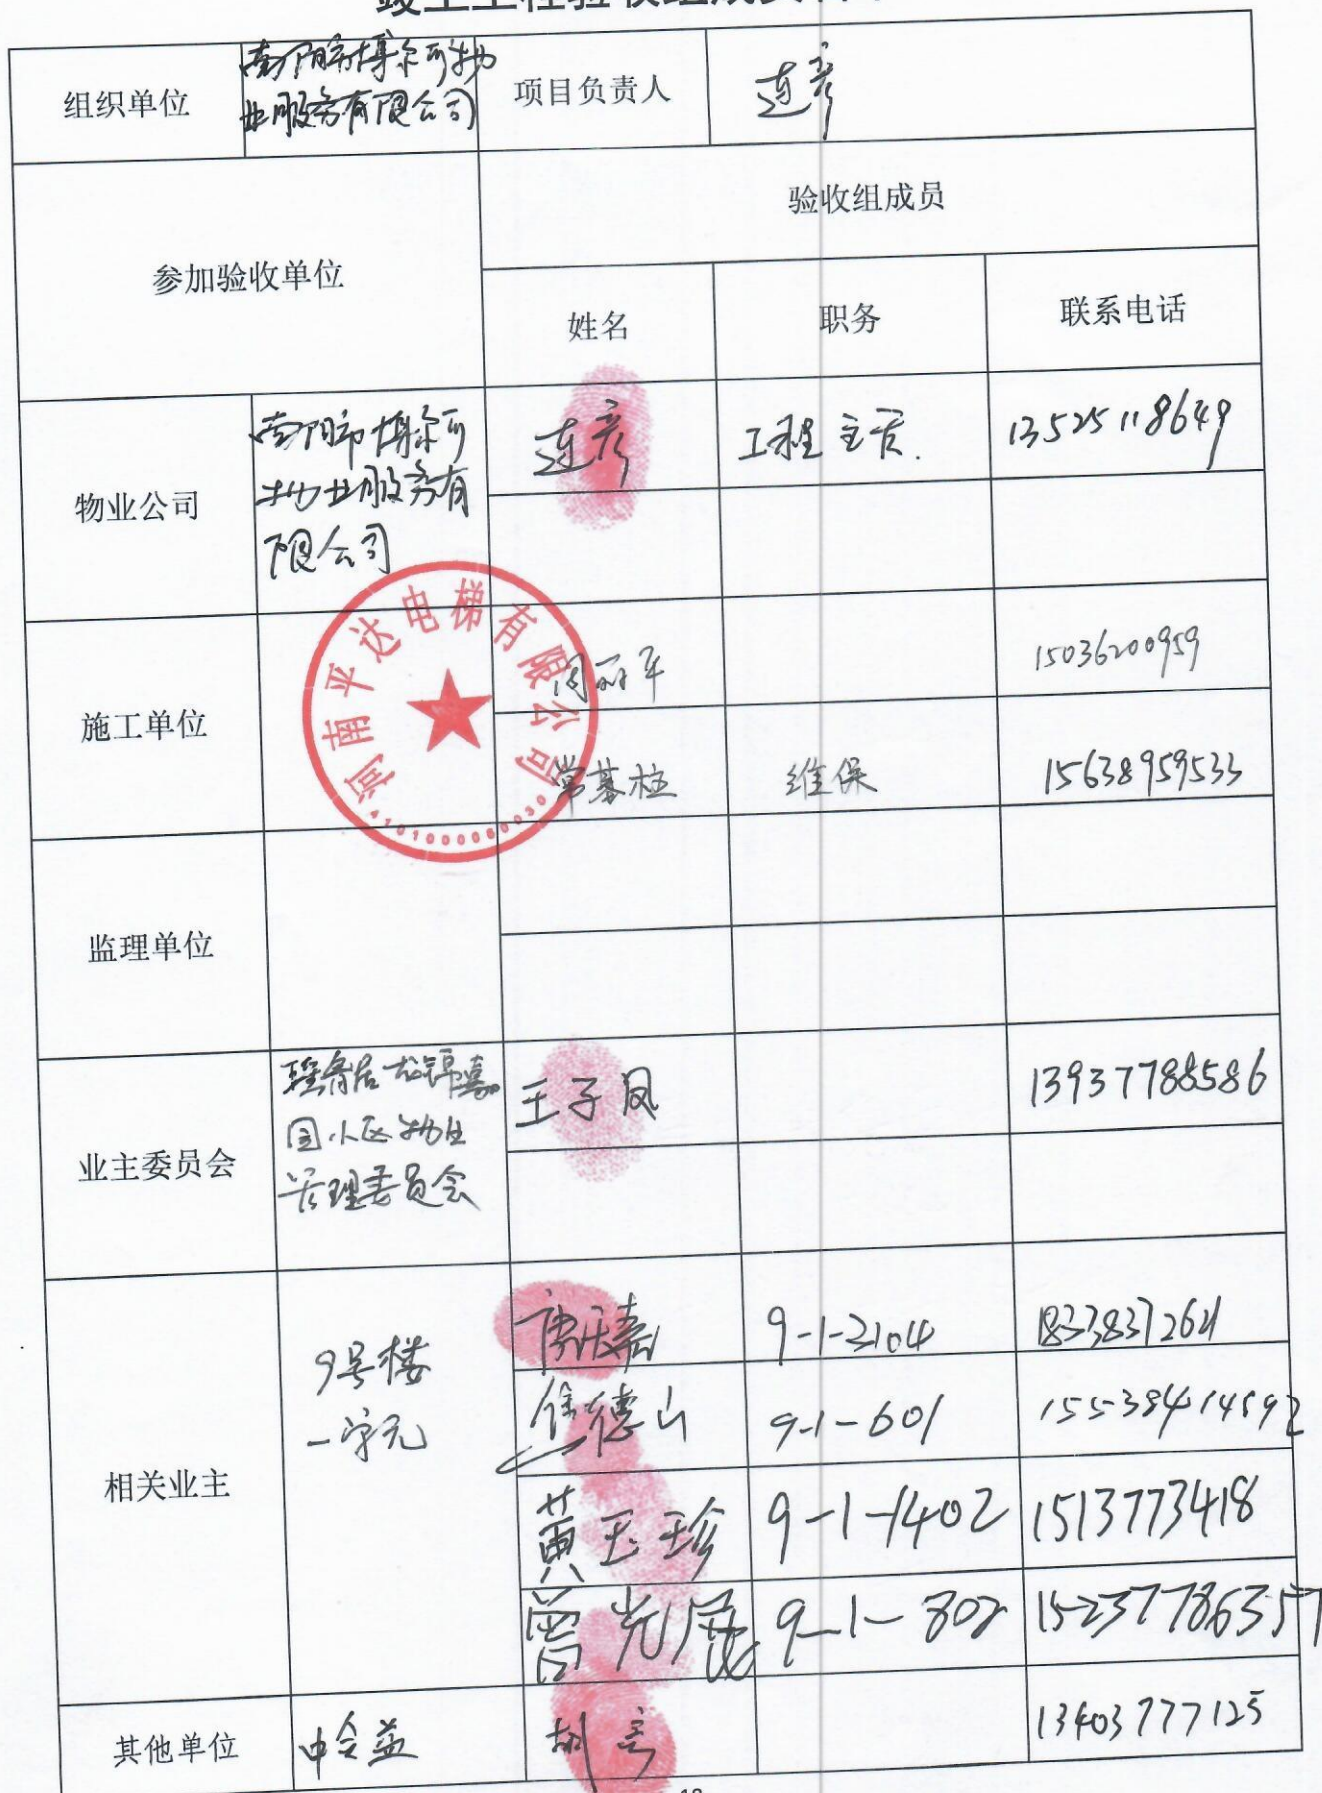 竣工工程验收组成员
组织单位
南阳市博尔可物
业服务有限公司
项目负责人
连彦
参加验收单位
验收组成员
姓名
职务
联系电话
物业公司
南阳市博尔可
物业服务有
限公司
连彦
工程主管
13525118649
施工单位
河南平达电梯有限公司
4101000060030
丽平
15036200959
常基柱
维保
15638959533
监理单位
业主委员会
龙锦嘉
园小区物业
管理委员会
王子凤
13937788586
相关业主
9号楼
一字元
9-1-2104
18338372621
焦德山
9-1-601
15538414892
黄玉珍
9-1-1402
1513773418
曾光成
9-1-802
15237786357
其他单位
中合益
胡彦
13403777125